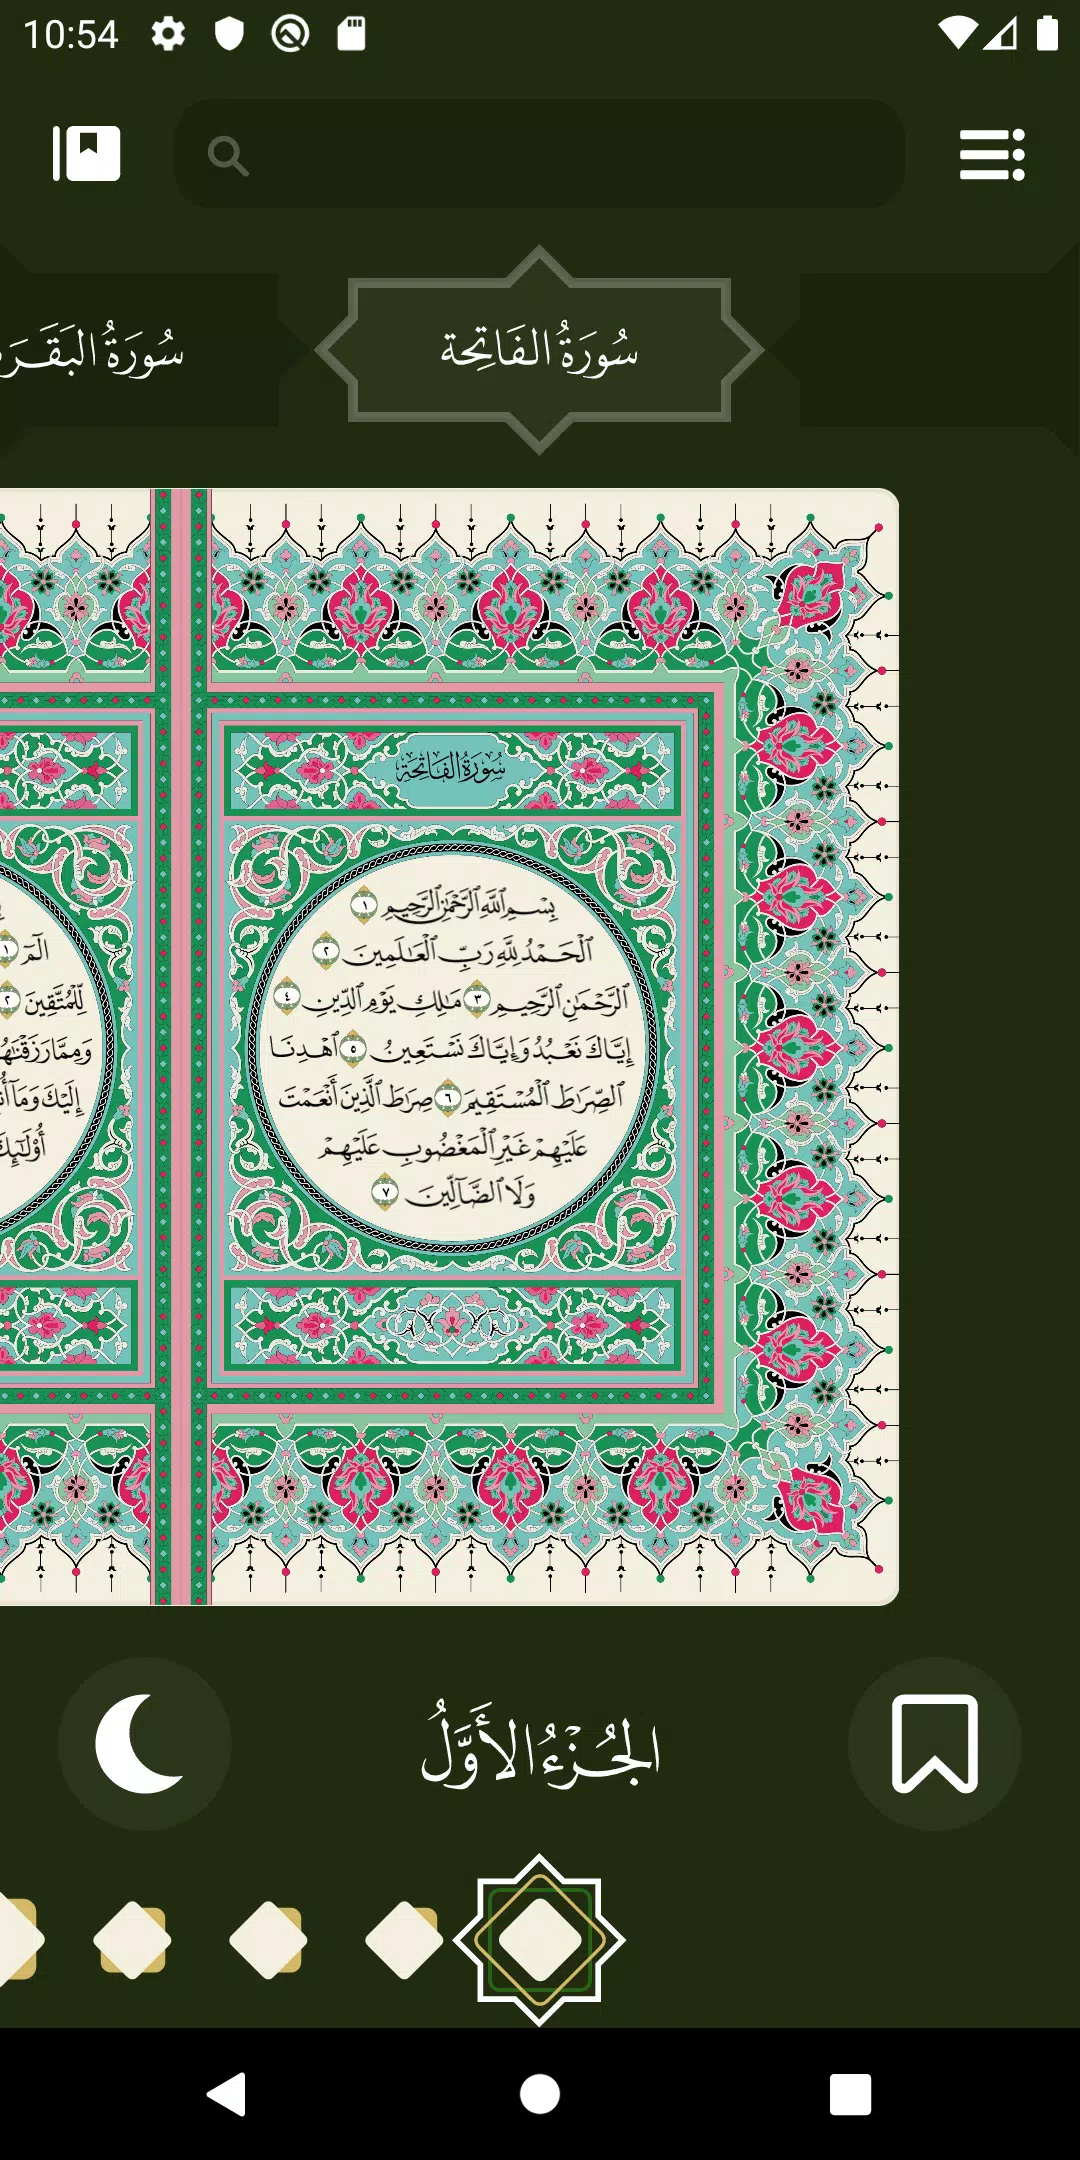 10:54
سُورَةُ الفَاتِحة
سُورَةُ البَقَرَ
سُورَةُ الفَاتِحَة
بِسۡمِ ٱللَّهِ ٱلرَّحۡمَٰنِ ٱلرَّحِيمِ ١
ٱلۡحَمۡدُ لِلَّهِ رَبِّ ٱلۡعَٰلَمِينَ ٢
ٱلرَّحۡمَٰنِ ٱلرَّحِيمِ ٣ مَٰلِكِ يَوۡمِ ٱلدِّينِ ٤
إِيَّاكَ نَعۡبُدُ وَإِيَّاكَ نَسۡتَعِينُ ٥ ٱهۡدِنَا
ٱلصِّرَٰطَ ٱلۡمُسۡتَقِيمَ ٦ صِرَٰطَ ٱلَّذِينَ أَنۡعَمۡتَ
عَلَيۡهِمۡ غَيۡرِ ٱلۡمَغۡضُوبِ عَلَيۡهِمۡ
وَلَا ٱلضَّآلِّينَ ٧
الٓمٓ ١
لِّلۡمُتَّقِينَ ٢
وَمِمَّا رَزَقۡنَٰهُ
إِلَيۡكَ وَمَآ أُن
أُوْلَٰٓئِكَ
الجُزْءُ الأَوَّلُ